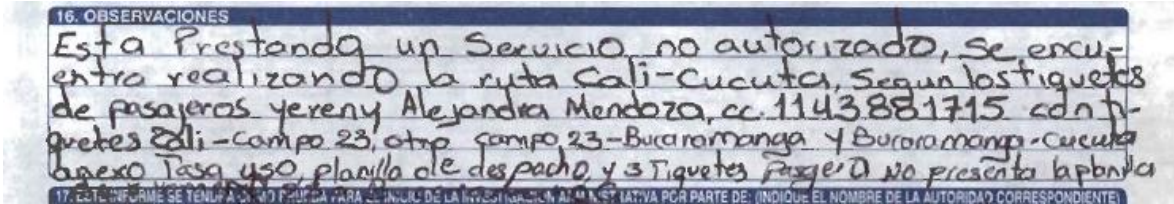 16. OBSERVACIONES
Esta Prestando un Servicio no autorizado, se encu-
entra realizando la ruta Cali-Cucuta, Segun los tiquetes
de pasajeros yereny Alejandra Mendoza, cc. 1143881715 con ti-
quetes Cali-Campo 23, otro campo, 23-Bucaramanga y Bucaramanga-Cucuta
anexo Tasa uso, planilla de despacho, y 3 Tiquetes Pasajero No presenta la planilla
17. ESTE INFORME SE TENDRA COMO PRUEBA PARA EL INICIO DE LA INVESTIGACION ADMINISTRATIVA POR PARTE DE: (INDIQUE EL NOMBRE DE LA AUTORIDAD CORRESPONDIENTE)